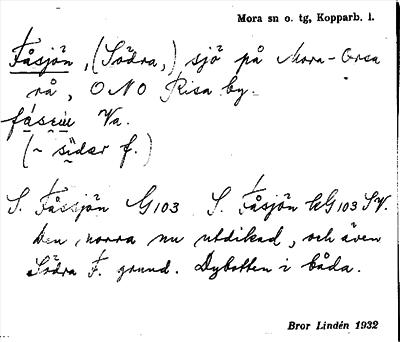 Mora sn o. tg, Kopparb. l.
Fåsjön, (Södra,) sjö på Mora-Orsa
rå, ONO Risa by.
Va.
(~ söder f.)
S. Fåssjön G103 S. Fåsjön kG103 SV.
Den norra nu utdikad, och även
Södra F. grund. Dybotten i båda.
Bror Lindén 1932